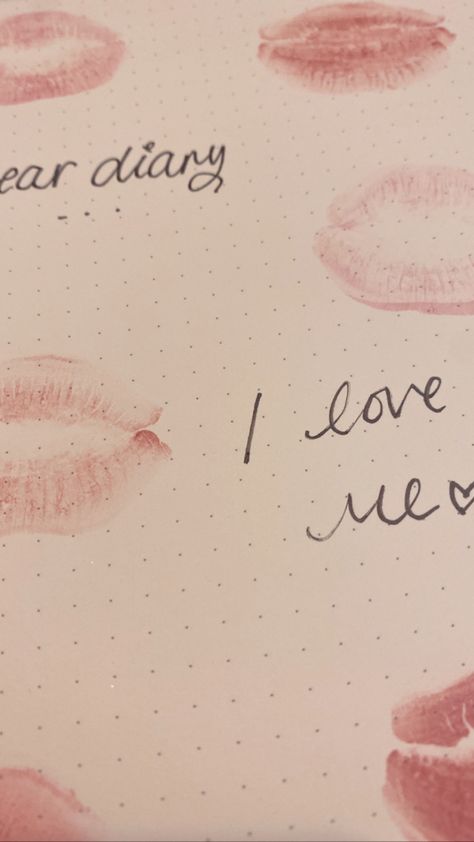 ear diary
- . .
I love
Me♡